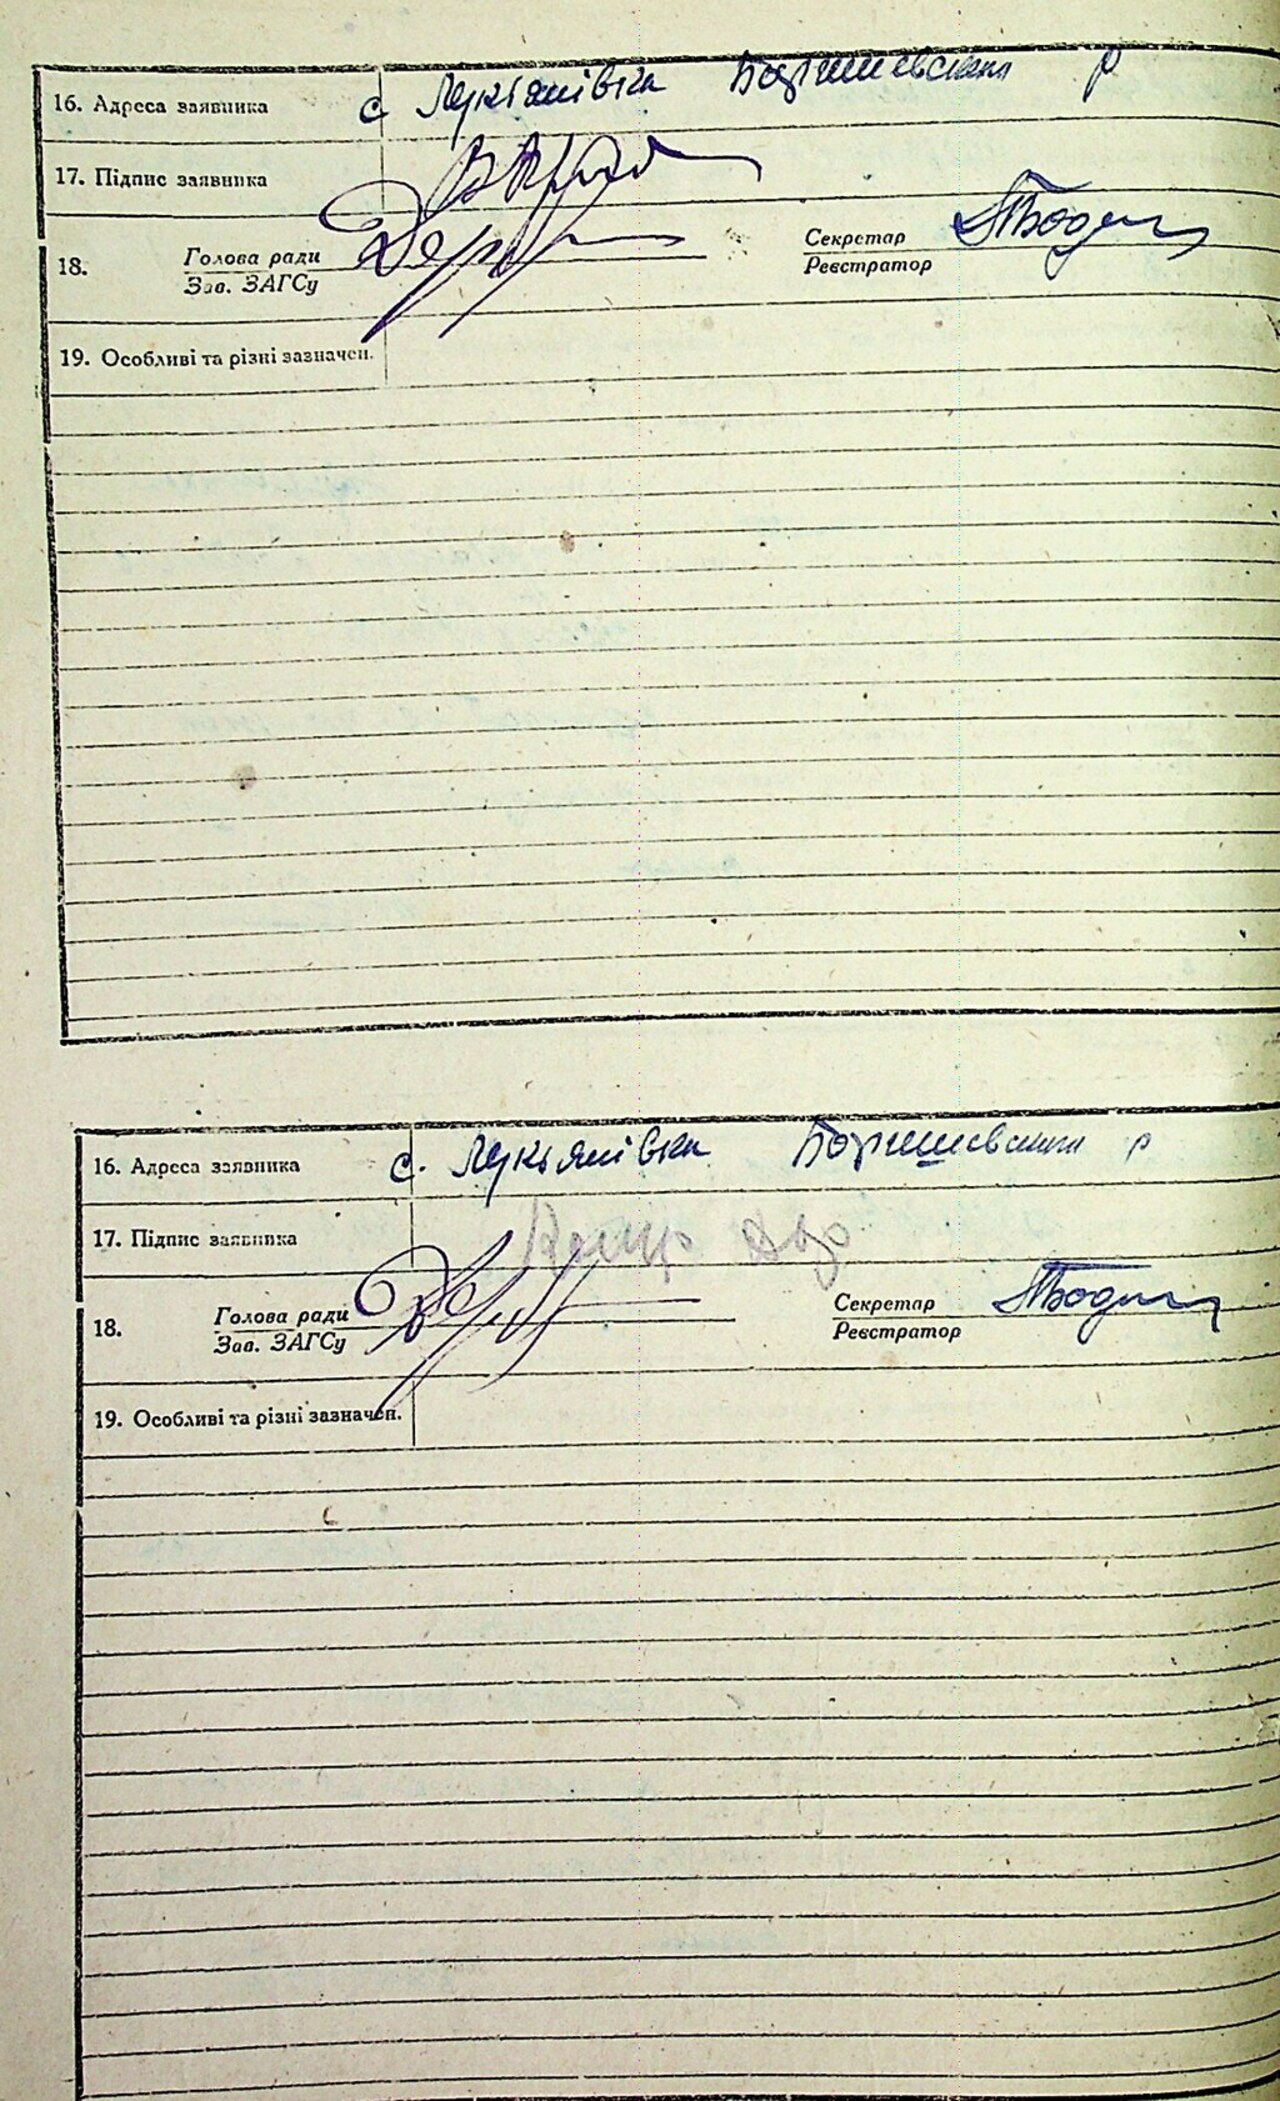 16. Адреса заявника с Лукьянівка Баришевський р
17. Підпис заявника
18. Голова ради Секретар
Зав. ЗАГСу Реєстратор
19. Особливі та різні зазначен.
16. Адреса заявника с. Лукьянівка Баришевський р
17. Підпис заявника
18. Голова ради Секретар
Зав. ЗАГСу Реєстратор
19. Особливі та різні зазначен.